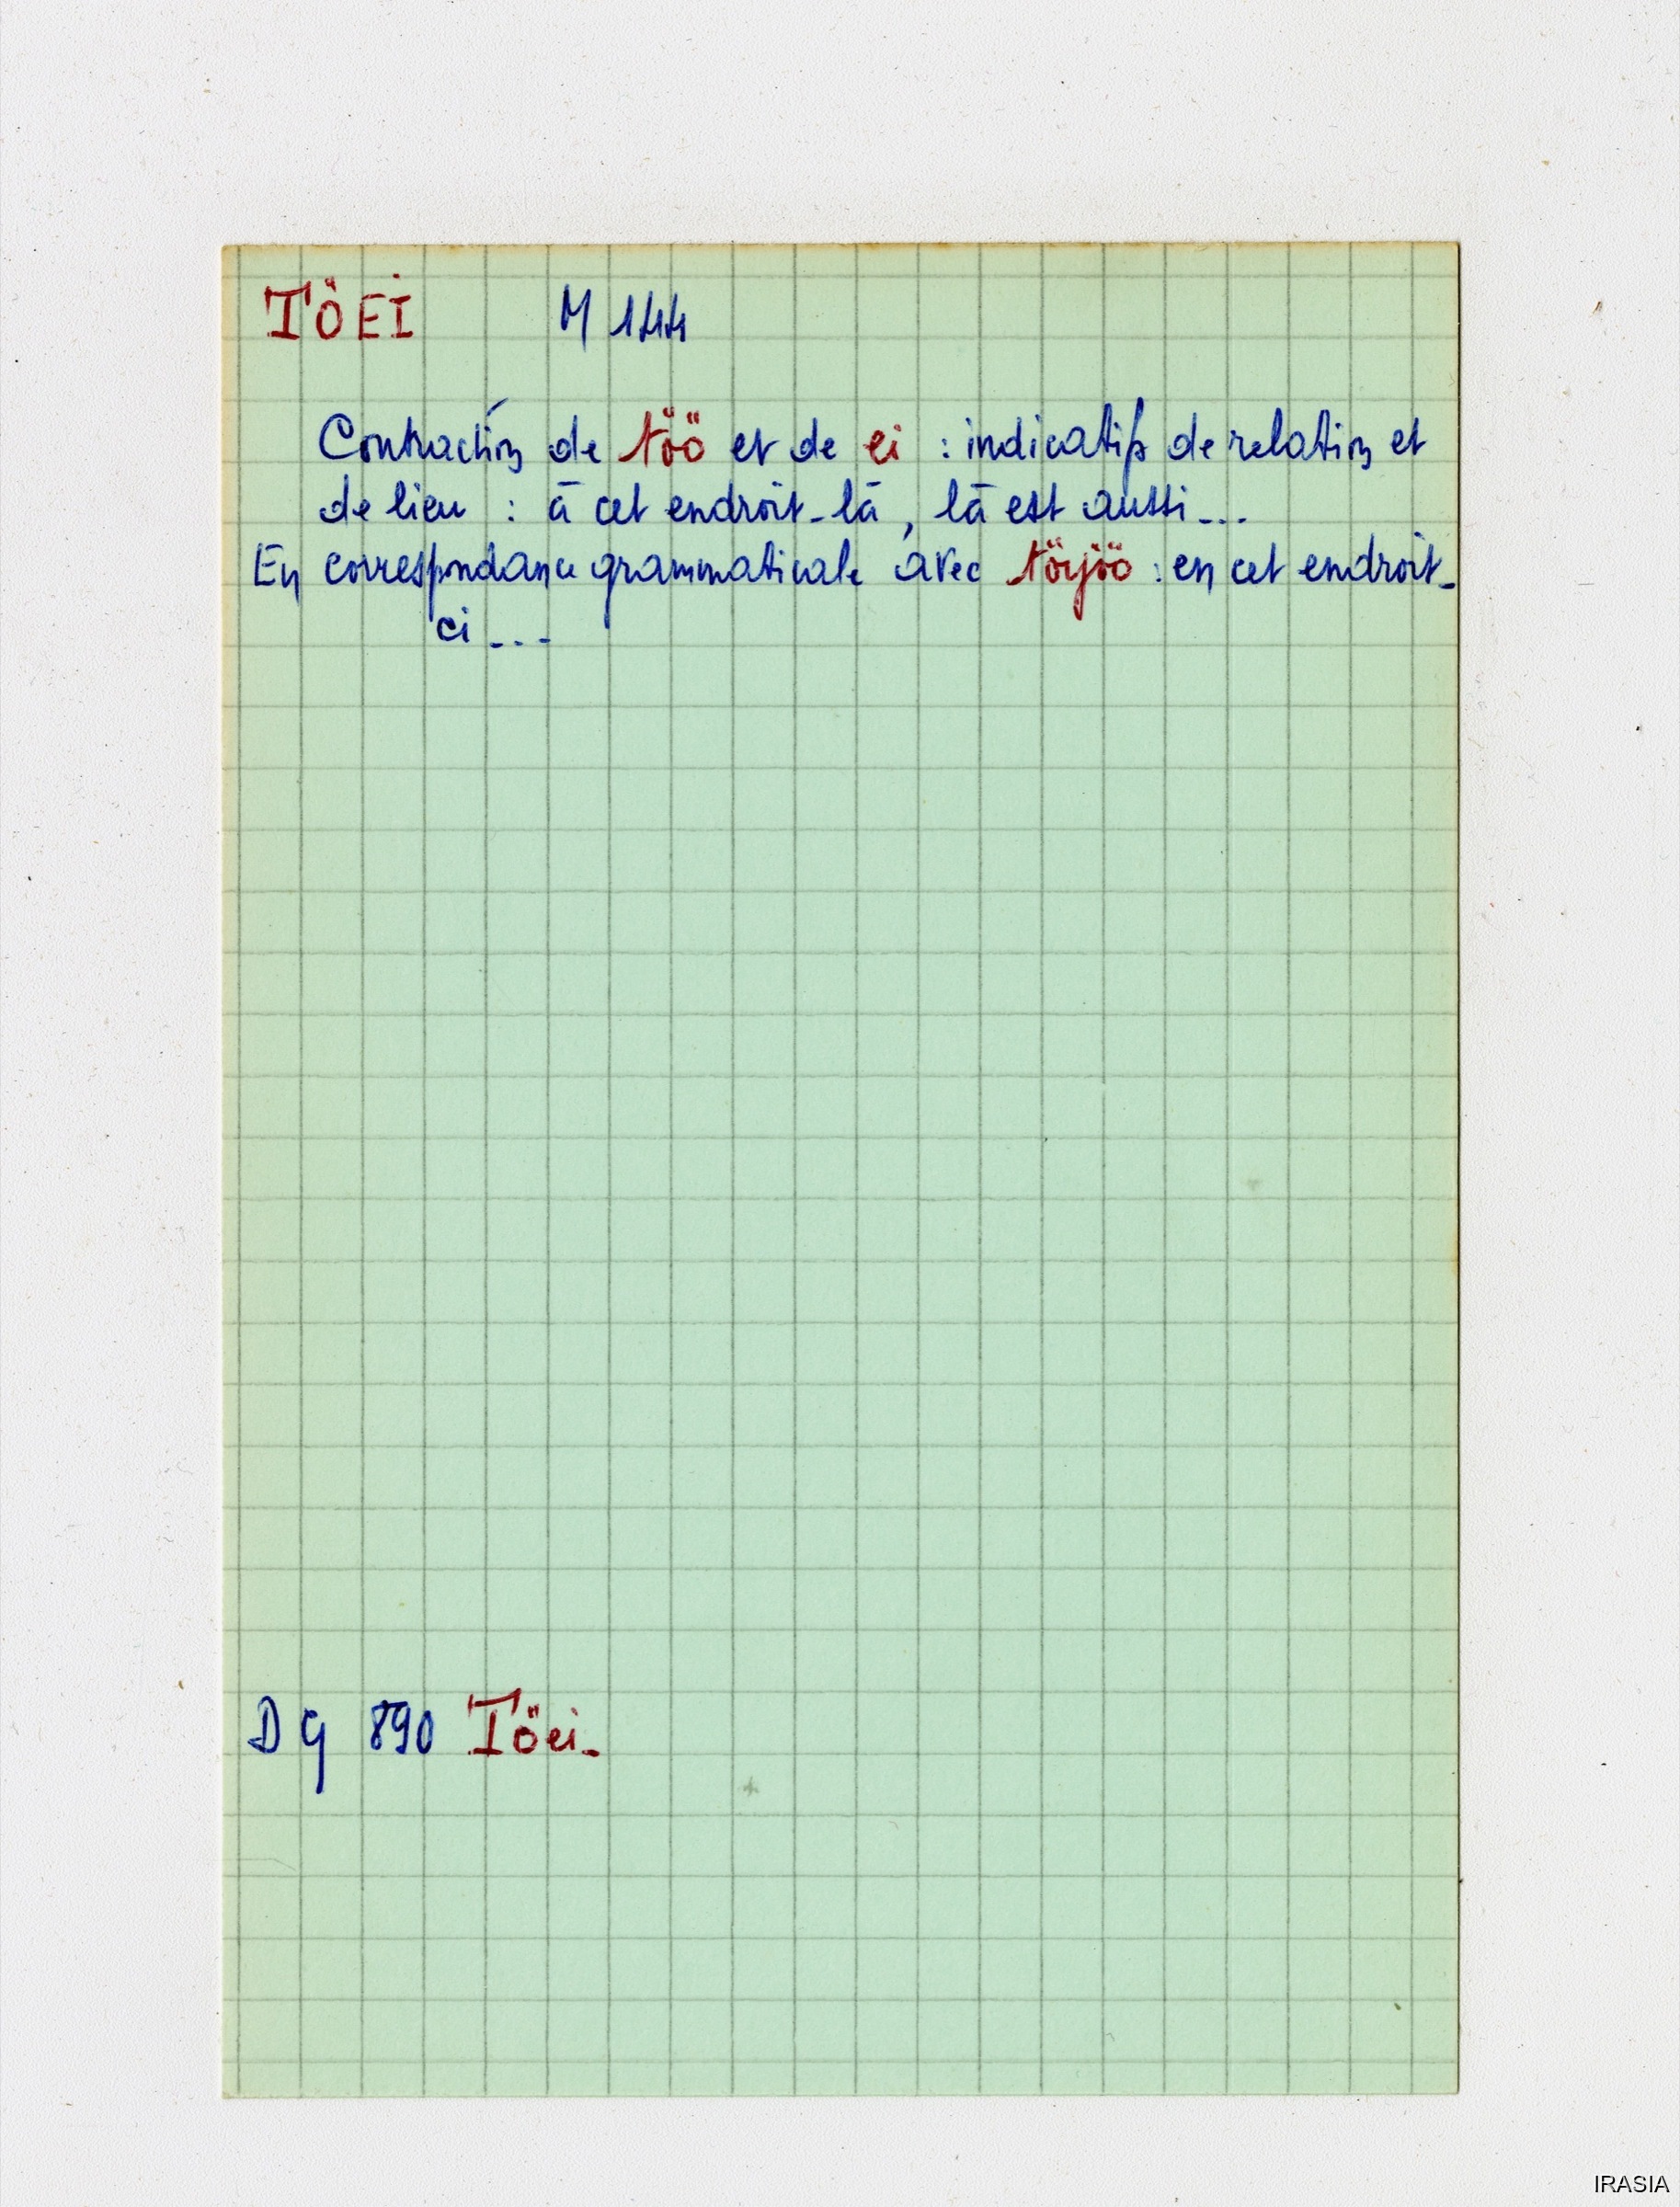 TÖEI M 144
Contraction de töö et de ei : indicatifs de relation et
de lieu : à cet endroit-là, là est aussi...
En correspondance grammaticale avec töyöö : en cet endroit-
ci...
DG 890 Töei-
IRASIA